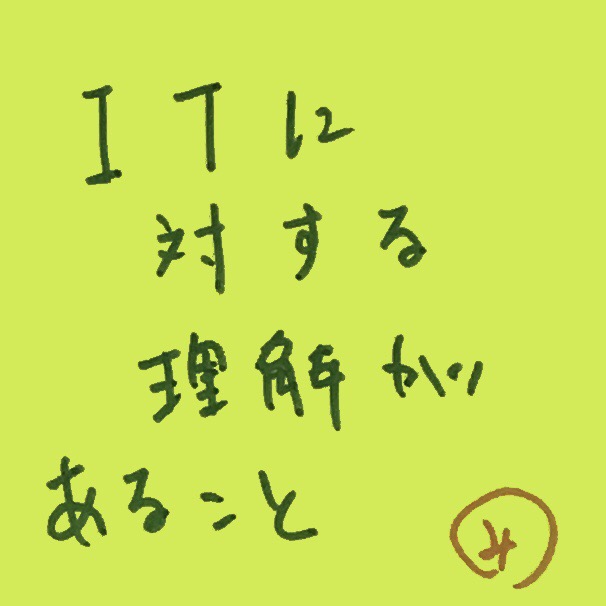 ITに
対する
理解が
あること